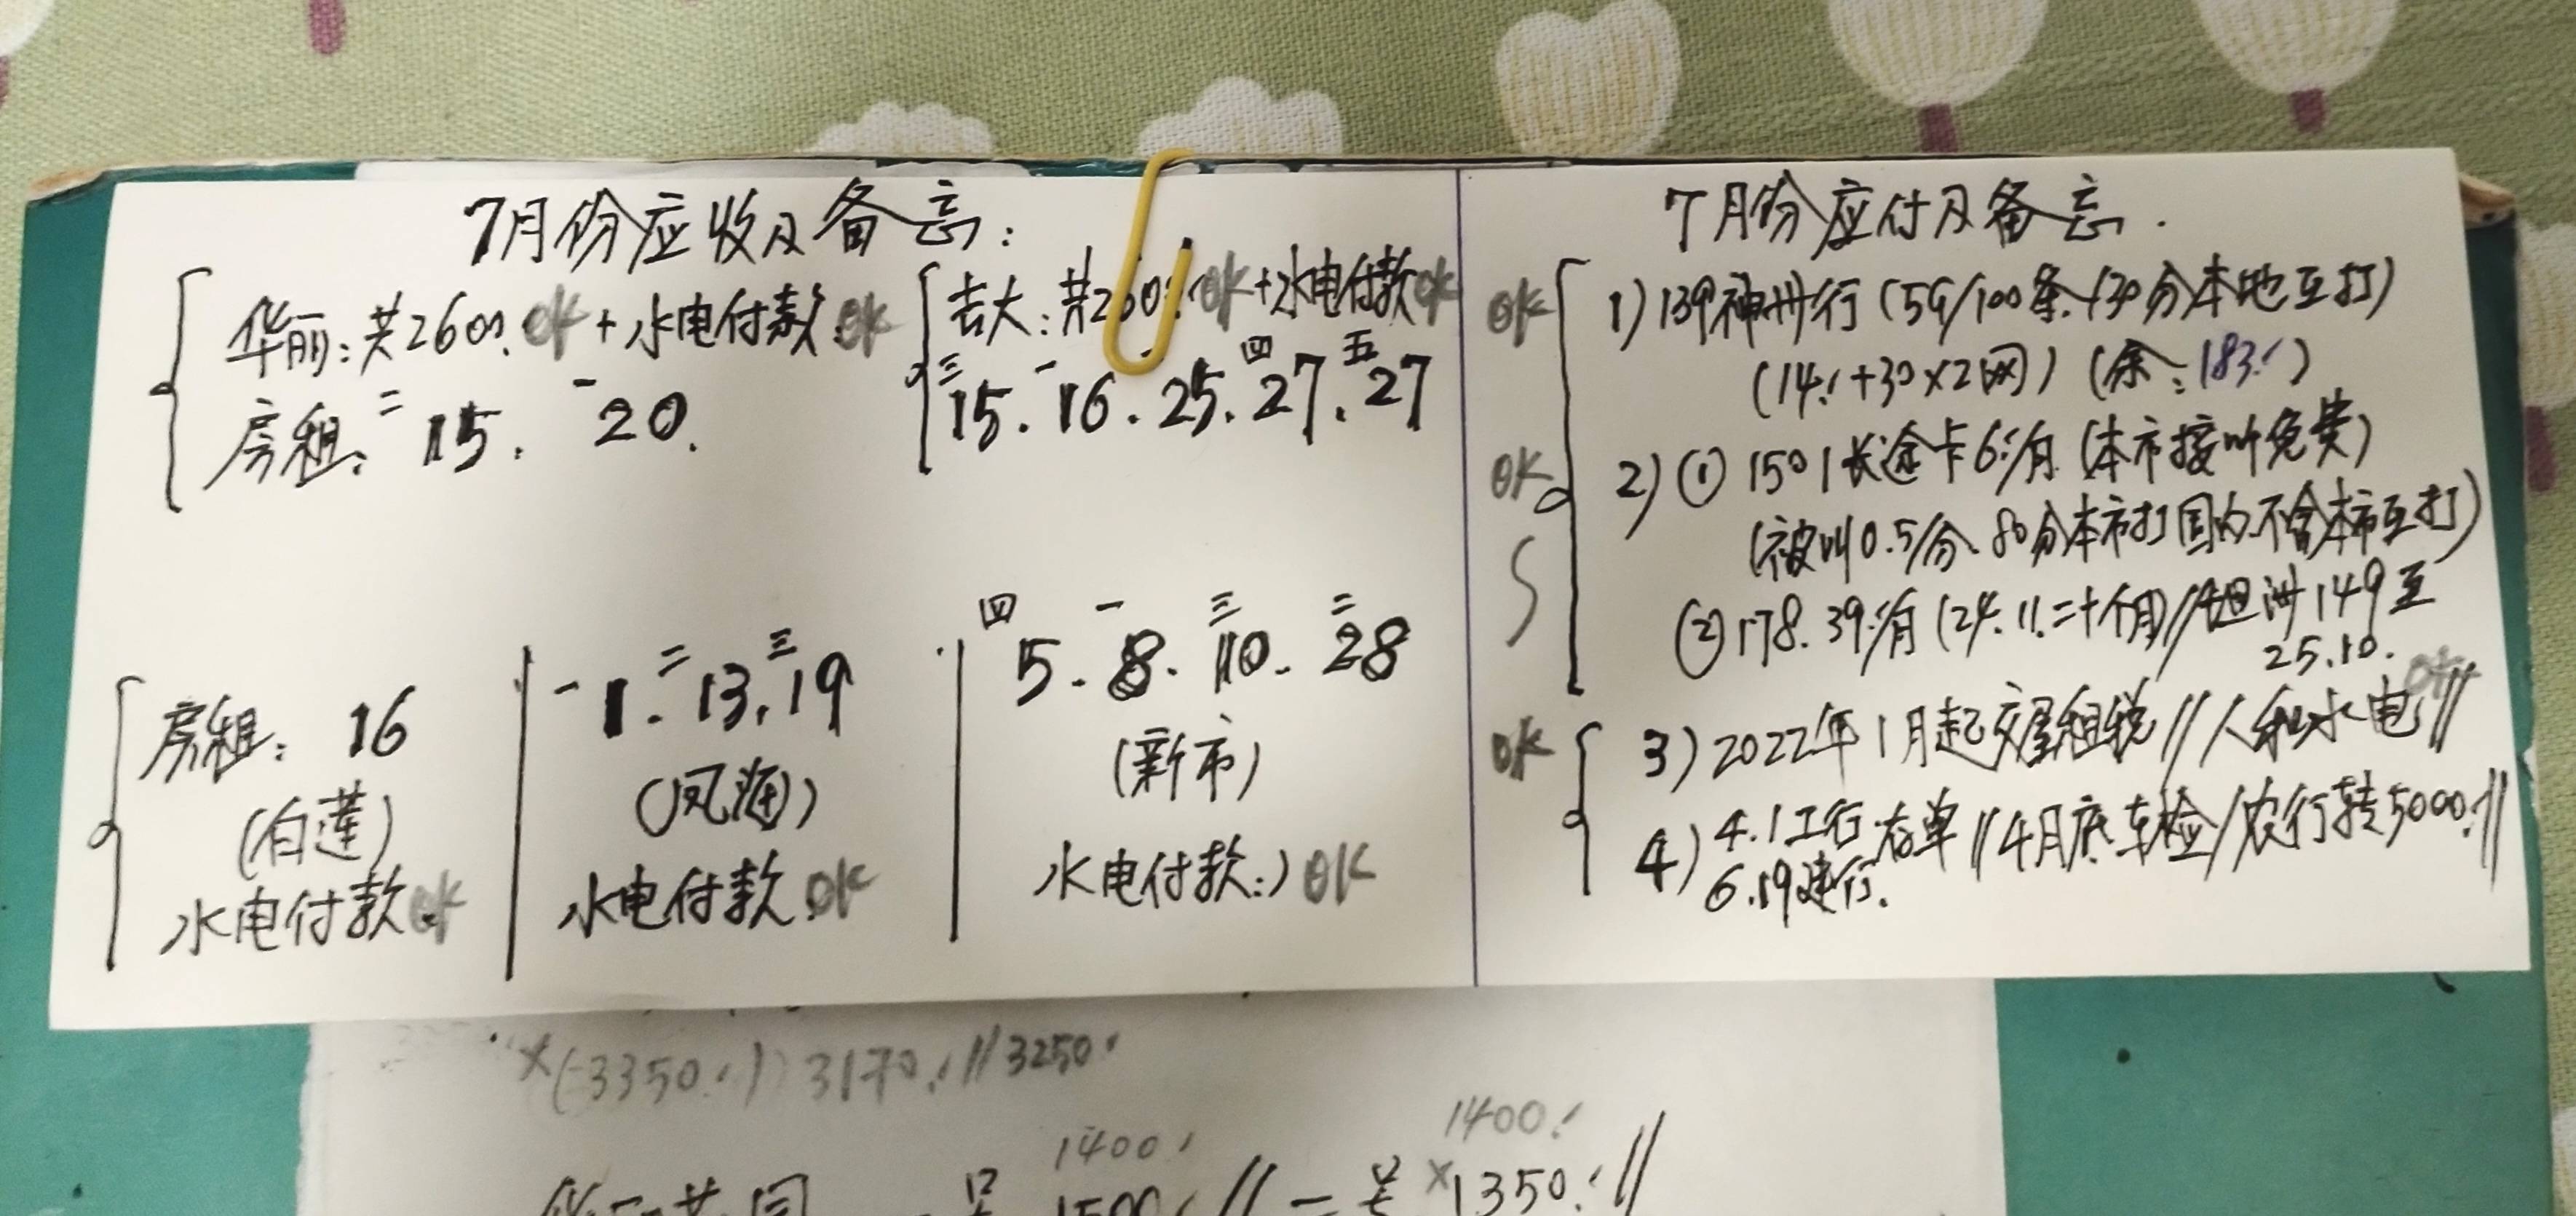 7月份应收及备忘:
华丽:共2600. OK + 水电付款. OK
房租: 二15. 一20.
吉大:共2600. OK+水电付款OK
三15. 一16. 25. 四27. 五27
房租: 16
(白莲)
水电付款. OK
一1. 二13. 三19
(凤凰)
水电付款. OK
四5. 一8. 三10. 二28
(新市)
水电付款:) OK
7月份应付及备忘.
OK 1) 139神州行 (5G/100条.130分本地互打)
(14.+30×2网) (余:183.)
OK 2) ① 1501长途卡6/月 (本市接听免费)
(被叫0.5/分.80分本市打国内不含本市互打)
② 178.39/月 (24.11.二十个月)//坦洲149至
25.10.
OK 3) 2022年1月起交屋租税//人和水电OK//
4) 4.1工行存单//4月底车检/农行转5000.//
6.19建行.
×(3350.) 3170.//3250.
1400. 1400.
1500.//二号×1350.//